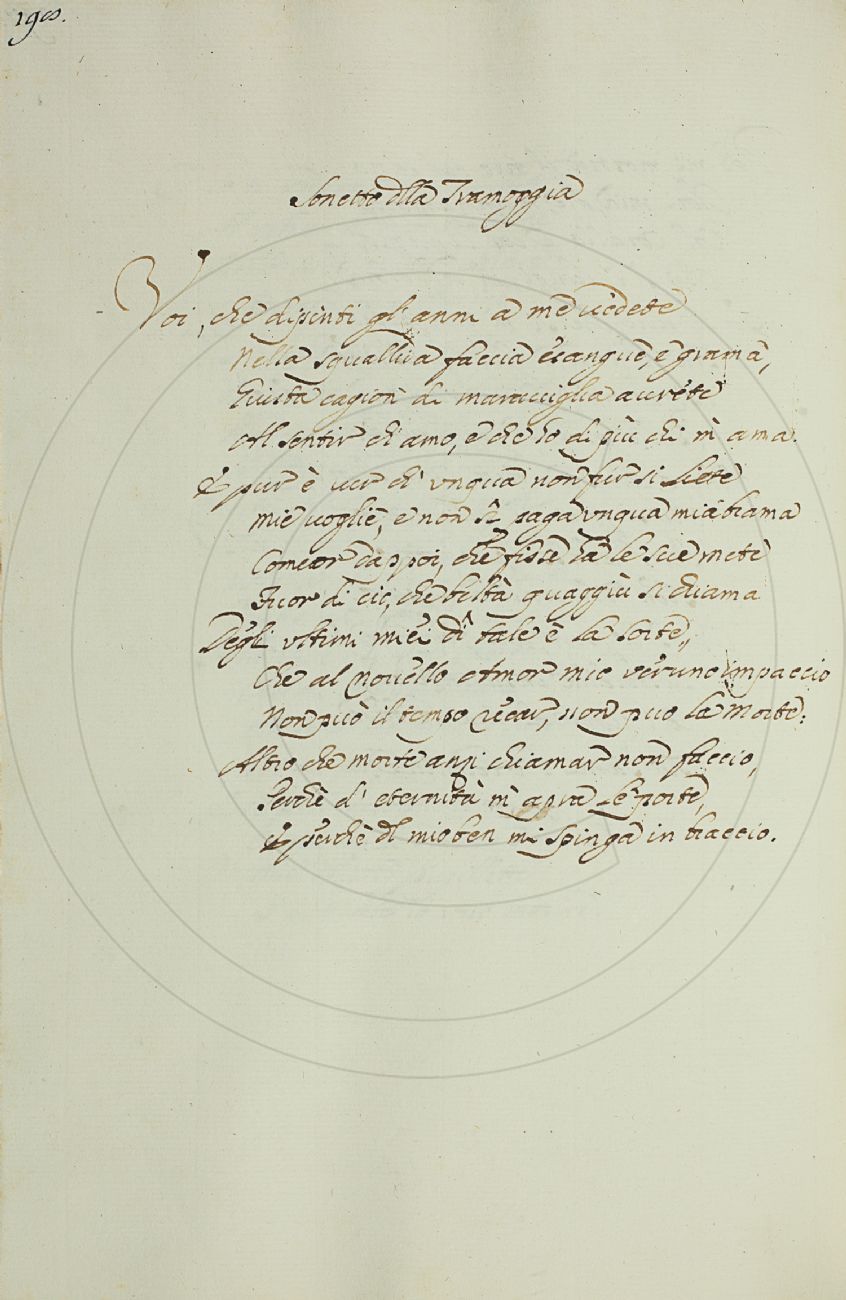 190.
Sonetto dlla Tramoggia
Voi, che dipinti gl' anni a me vedete
Nella squallida faccia esangue, e grama,
Giusta cagion di maraviglia avrete
Al sentir ch' amo, e che hò di più chi m' ama.
E pur è ver ch' unqua non fur si liete
Mie voglie, e non fù paga unqua mia brama
Come or da poi, che fisse hà le sue mete
Fuor di ciò, che beltà quaggiù si chiama
Degli ultimi miei dì tale è la sorte,
Che al novello Amor mio veruno impaccio
Non può il tempo recar, non può la Morte:
Altro che morte anzi chiamar non faccio,
Perchè d' eternità m' apra le porte,
E perchè dl mio ben mi spinga in braccio.